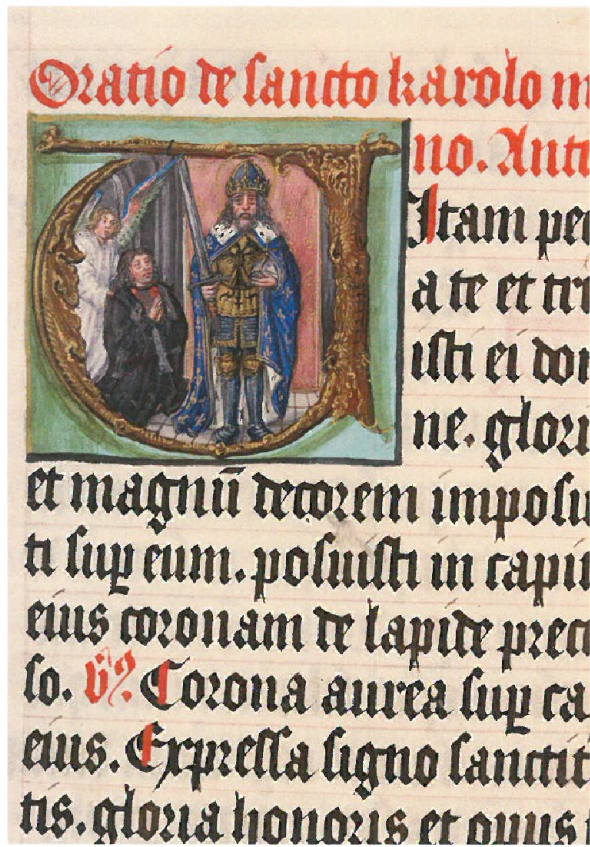 Oratio de sancto karolo m
no. Anti
Vitam pe
a te et tri
isti ei do
ne. glori
et magnū decorem imposu
ti sup eum. posuisti in capi
eius coronam de lapide preci
so. V. Corona aurea sup ca
eius. Expressa signo sanctit
tis. gloria honoris et opus